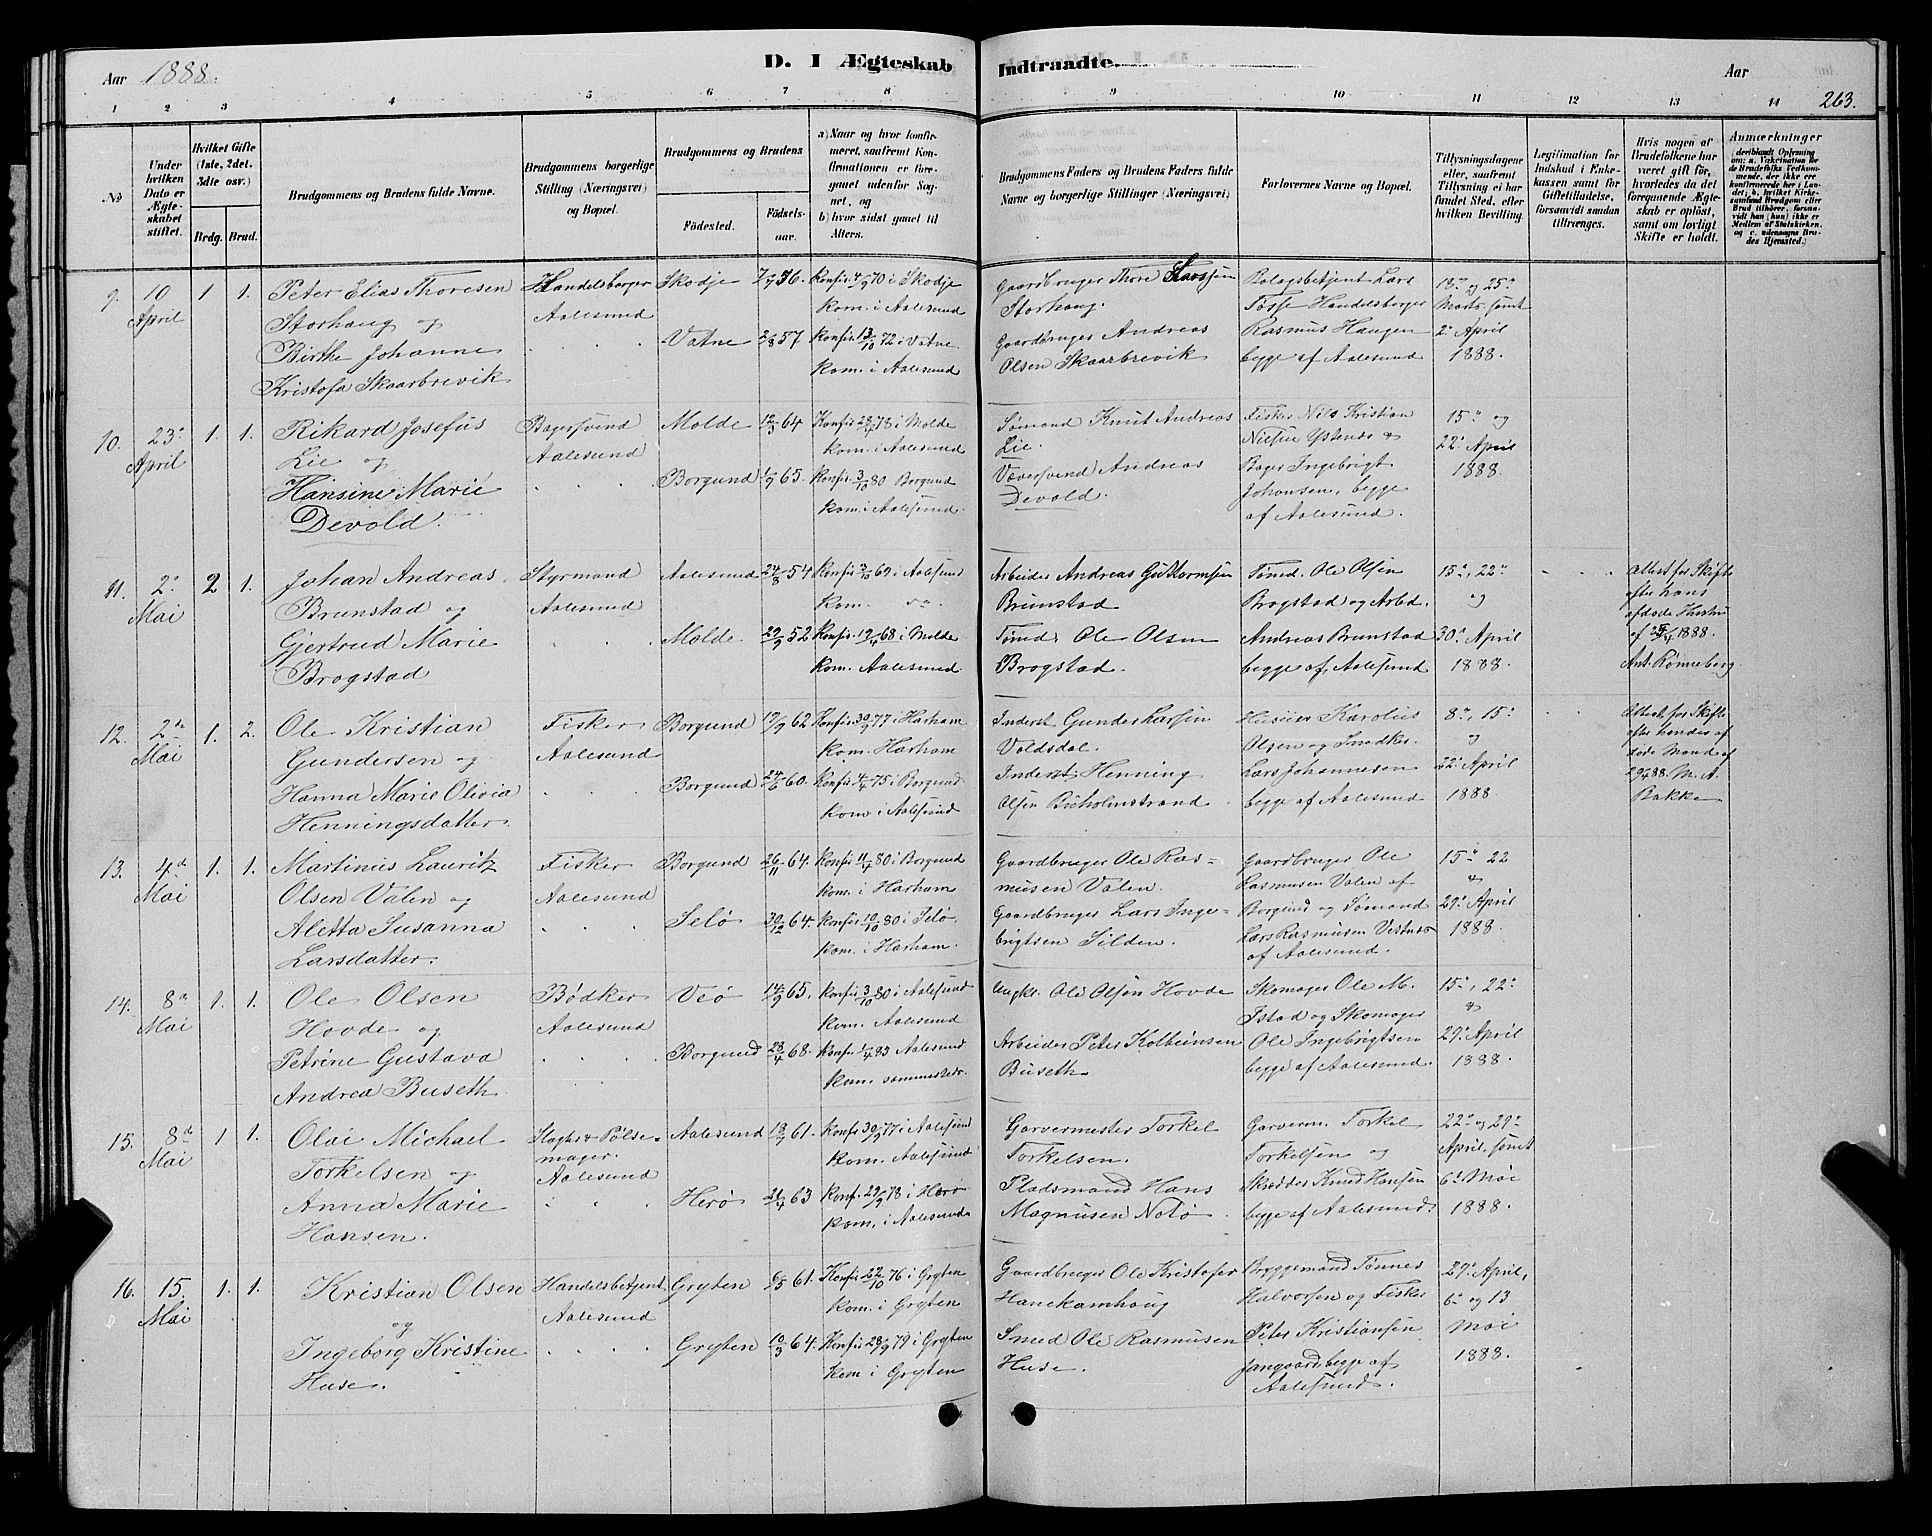 Aar 1888.
D. I Ægteskab Indtraadte.
Aar
263.
1 2 3 4 5 6 7 8 9 10 11 12 13 14
No
Under hvilken Dato er Ægteskabet stiftet.
Hvilket Gifte (1ste, 2det, 3dte osv.)
Brdg. Brud.
Brudgommens og Brudens fulde Navne.
Brudgommens borgerlige Stilling (Næringsvei) og Bopæl.
Brudgommens og Brudens
Fødested.
Fødselsaar.
a) Naar og hvor konfirmeret, saafremt Konfirmationen er foregaaet udenfor Sognet, og
b) hvor sidst gaaet til Alters.
Brudgommens Faders og Brudens Faders fulde Navne og borgerlige Stillinger (Næringsvei)
Forlovernes Navne og Bopæl.
Tillysningsdagene eller, saafremt Tillysning ei har fundet Sted, efter hvilken Bevilling.
Legitimation for Indskud i Enkekassen samt for Giftetilladelse, forsaavidt saadan tiltrænges.
Hvis nogen af Brudefolkene har været gift før, hvorledes da det foregaaende Ægteskab er opløst, samt om lovligt Skifte er holdt.
Anmærkninger
deriblandt Oplysning om: a. Vakcination for de Brudefolks Vedkommende, der ikke ere konfirmerede her i Landet; b. hvilket Kirkesamfund Brudgom eller Brud tilhører, forsaavidt han (hun) ikke er Medlem af Statskirken, og c. udensogns Brudes Hjemsted.)
9. 10 April 1 1.
Peter Elias Thoresen
Storhaug og
Birthe Johanne
Kristofa Skaarbrevik
Handelsborger
Aalesund
Skodje 7/9 36.
Vatne 2/8 57
Konfir 4/9 70 i Skodje
kom. i Aalesund
Konfir. 13/10 72 i Vatne
kom. i Aalesund
Gaardbruger Thore
Storhaug.
Gaardbruger Andreas
Olsen Skaarbrevik
Bolagsbetjent Lars
Tosse Handelsborger
Rasmus Haugen
begge af Aalesund
18de og 25de
Marts samt
2. April
1888.
10. 23. April 1. 1.
Rikard Josefus
Lie og
Hansine Marie
Devold.
Bagersvend
Aalesund
Molde 12/3 64
Borgund 1/9 65.
Konfir 28/4 78 i Molde
kom. i Aalesund
Konfir. 3/10 80 Borgund
kom. i Aalesund.
Sømand Knut Andreas
Lie.
Væversvend Andreas
Devold.
Fisker Nils Kristian
Nilsen Ystenes &
Bager Ingebrigt
Johansen, begge
af Aalesund.
15. og
22. April
1888.
11. 2. Mai 2 1.
Johan Andreas
Brunstad og
Gjertrud Marie
Brogstad
Styrmand
Aalesund
Aalesund 24/8 54
Molde. 29/9 52
Konfir 3/10 69 i Aalesund
kom. do.
Konfir. 19/4 68 i Molde
kom. Aalesund
Arbeider Andreas Guttormsen
Brunstad
Tømd. Ole Olsen
Brogstad.
Tømd. Ole Olsen
Brogstad og Arbd.
Andreas Brunstad
begge af Aalesund
15., 22.
og
30. April
1888
Attest for Skifte
efter hans
afdøde Hustru
af 25/4 1888.
Ant. Rønneberg.
12. 2de Mai 1. 2.
Ole Kristian
Gundersen og
Hanna Marie Olivia
Henningsdatter.
Fisker
Aalesund
Borgund 19/9 62
Borgund 24/6 60.
Konfir 30/9 77 i Harham
kom. Harham
Konfir 4/4 75 i Borgund
kom. i Aalesund
Inderst Gunder Larsen
Valdsdal.
Inderst Henning
Olsen Buholmstrand
Husuier Karolius
Olsen og Snedker
Lars Johannesen
begge af Aalesund
8., 15.
og
22. April
1888
Attest for Skifte
efter hendes af
døde Mand af
29/4 88. M. A.
Bakke
13. 4de Mai 1. 1.
Martinus Lauritz
Olsen Valen og
Aletta Susanna
Larsdatter.
Fisker
Aalesund
Borgund 26/11 64.
Selø 30/12 64.
Konfir 11/4 80 i Borgund
kom. i Harham
Konfir 10/10 80 i Selø
kom. i Harham.
Gaardbruger Ole Ras-
musen Valen.
Gaardbruger Lars Inge-
brigtsen Silden.
Gaardbruger Ole
Rasmusen Valen af
Borgund og Sømand
Lars Rasmusen Vestnæs
af Aalesund.
15. 22
&
29. April
1888.
14. 8de Mai 1. 1.
Ole Olsen
Hovde og
Petrine Gustava
Andrea Buseth.
Bødker
Aalesund
Veø 14/9 65.
Borgund 28/4 68.
Konfir 3/10 80 i Aalesund
kom. Aalesund
Konfir 1/4 83 Aalesund
kom. sammesteds.
Ungkl. Ole Olsen Hovde
Arbeider Peter Kolbeinsen
Buseth
Skomager Ole M.
Istad og Skomager
Ole Ingebrigtsen
begge af Aalesund.
15., 22.
&
29. April
1888.
15. 8de Mai 1 1.
Olai Michael
Torkelsen og
Anna Marie
Hansen.
Slagter & Pølse-
mager.
Aalesund
Aalesund 18/7 61.
Herø 21/4 63
Konfir 30/9 77 i Aalesund
kom. Aalesund
Konf. 29/9 78 i Herø
kom. i Aalesund
Garvermester Torkel
Torkelsen.
Pladsmand Hans
Magnusen Notø.
Garverm. Torkel
Torkelsen og
Skredder Knud Hansen
begge af Aalesund
22. og 29.
April, samt
6. Mai
1888.
16. 15. Mai 1. 1.
Kristian Olsen
og
Ingeborg Kristine
Huse.
Handelsbetjent
Aalesund
Grytten 6/5 61.
Grytten 10/3 64.
Konfir 22/10 76 i Grytten
kom. i Grytten
Konfir 28/9 79 i Grytten
kom i Grytten
Gaardbruger Ole Kristofer
Hanekamhaug
Smed Ole Rasmusen
Huse.
Bryggemand Tønnes
Halvorsen og Fisker
Peter Kristiansen
Jangaard begge af
Aalesund.
29. April,
6. og 13
Mai
1888.